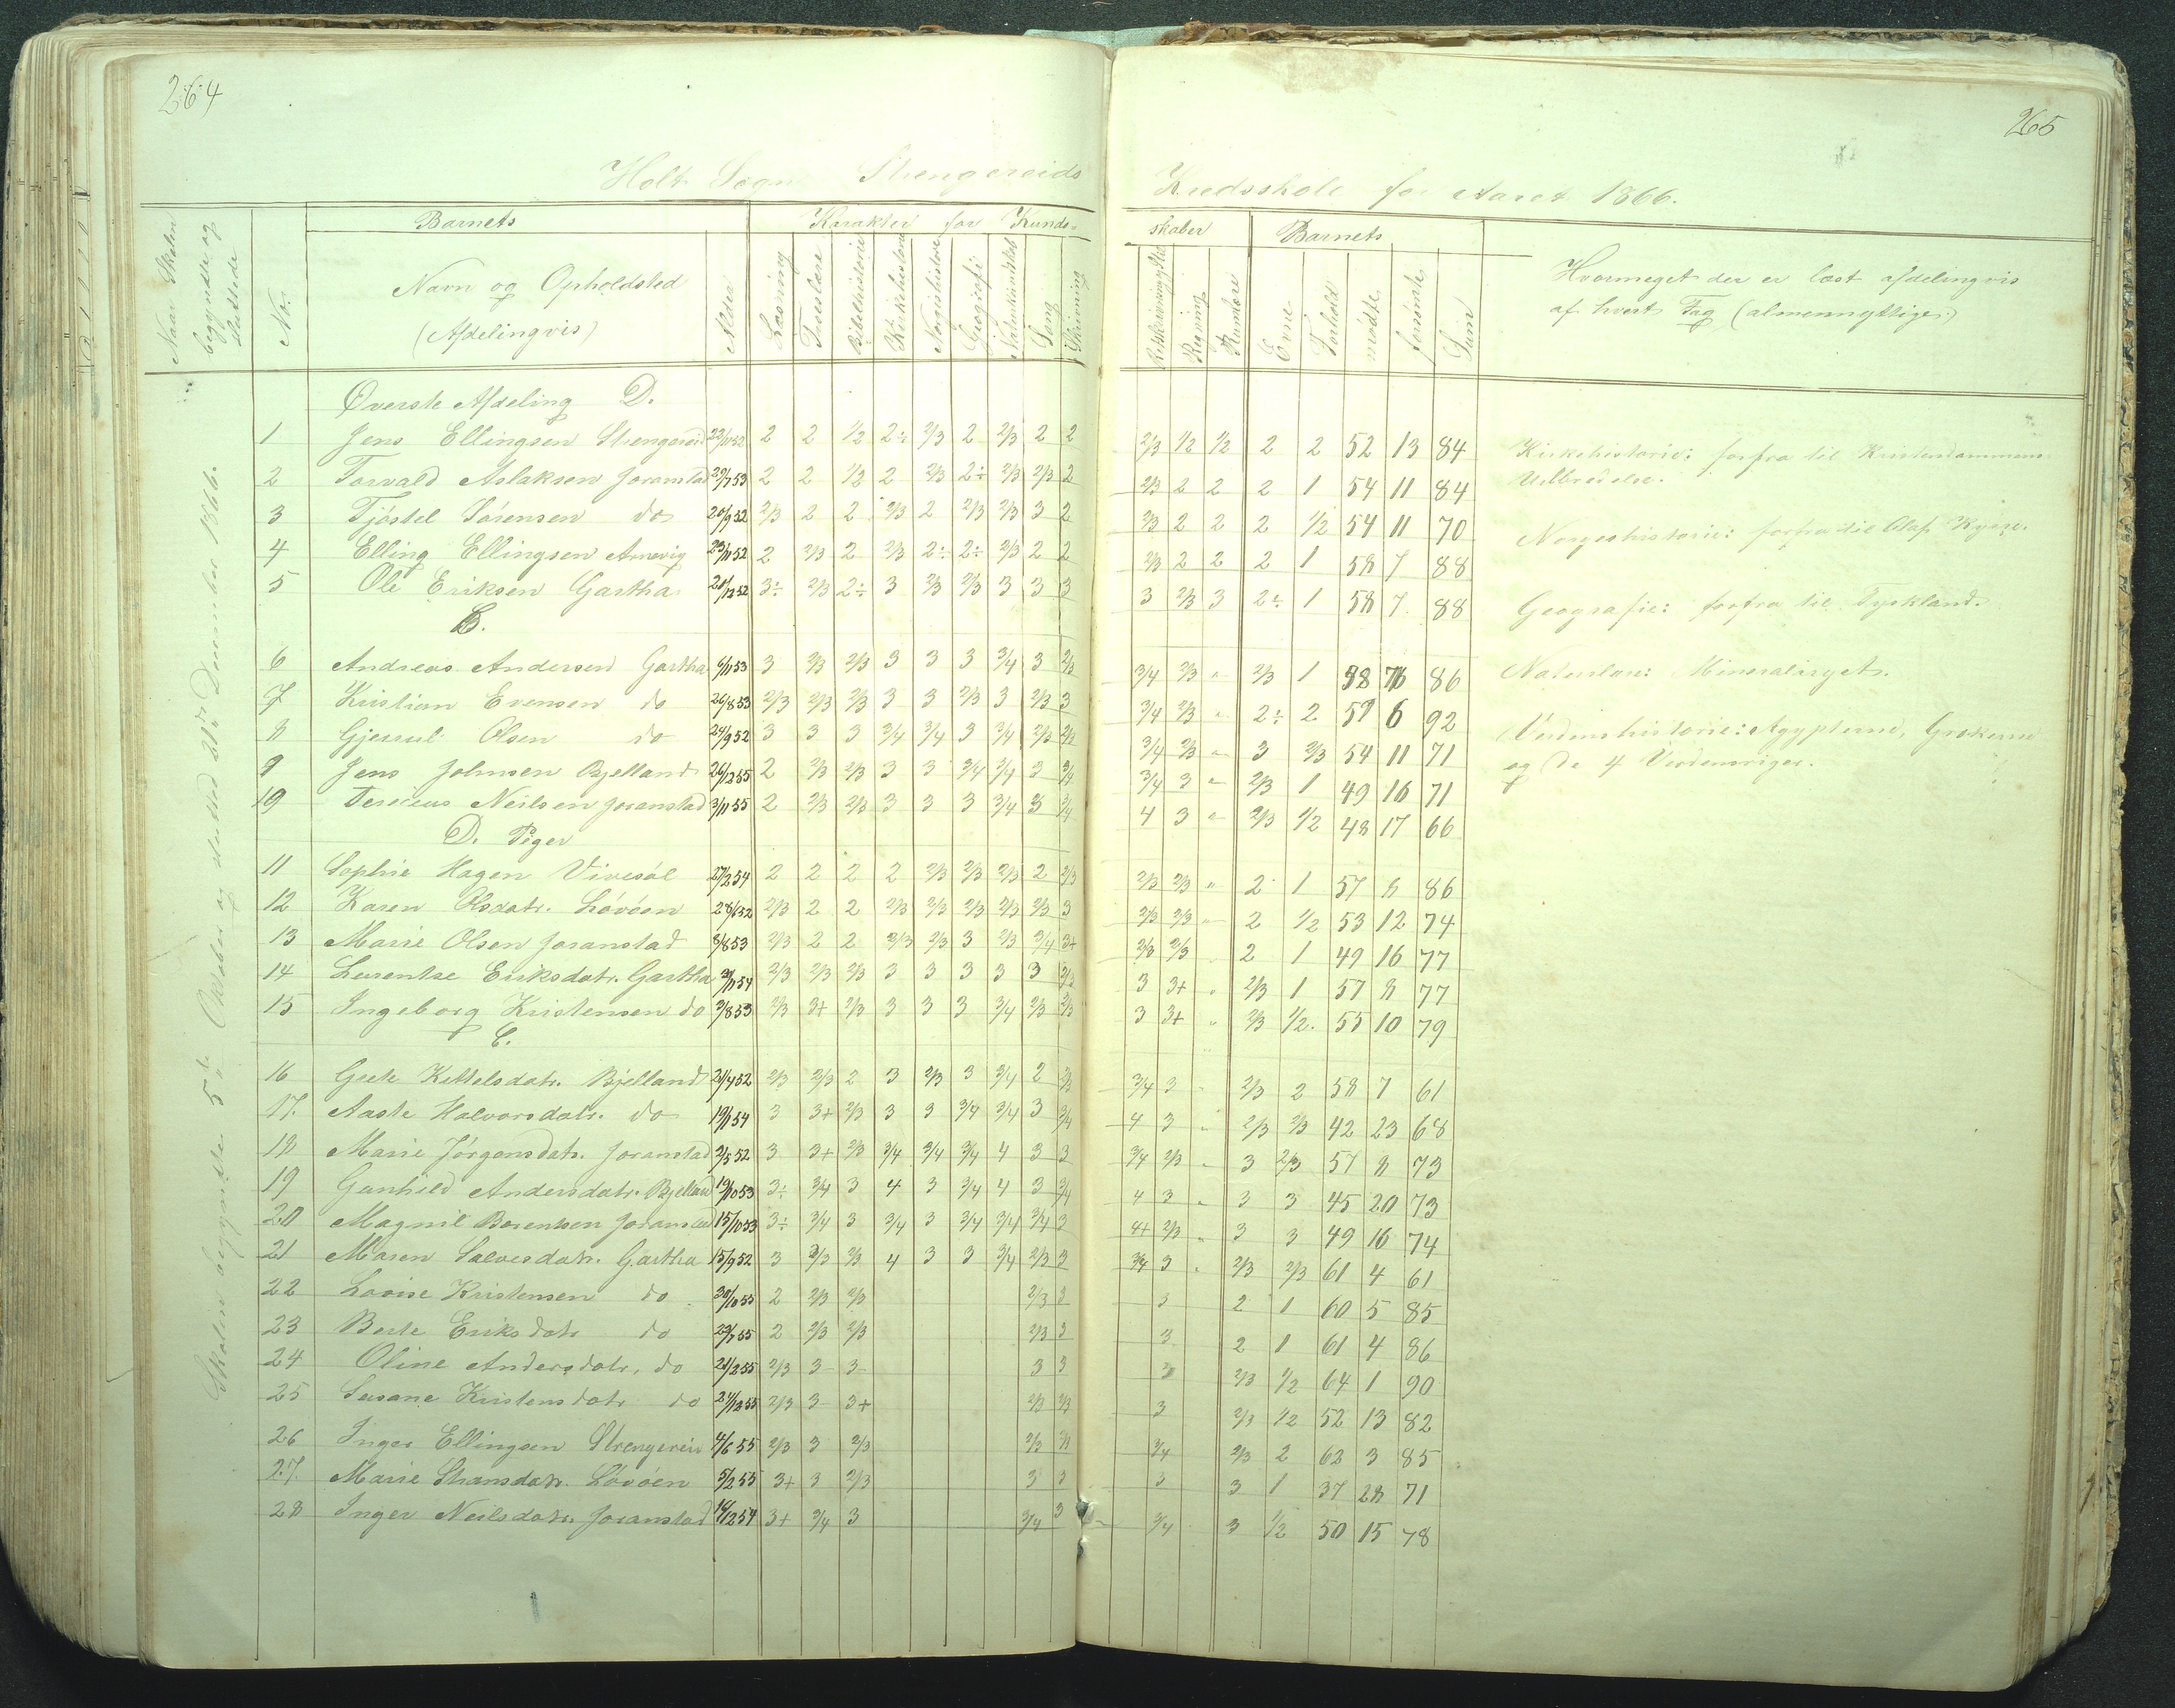 264
265
Holt Sogn Strengereids
Kredsskole for Aaret 1866.
Naar Skolen begyndte og sluttede
No.
Barnets
Navn og Opholdsted
(Afdelingvis)
Alder
Karakter for Kunds-
Læsning
Troeslære
Bibelhistorie
Kirkehistorie
Norgishistorie
Geografi
Naturkundskab
Sang
Skrivning
skaber
Retskrivning
Regning
Barnets
Evne
Forhold
mødte
forsømte
Sum
Hvormeget der er læst afdelingvis
af hvert Fag (almennyttige)
Skolen begyndte 5te Oktober og slutted 21de December 1866.
Øverste Afdeling D.
1 Jens Ellingsen Strengereid 22/11 52 2 2 1/2 2÷ 2/3 2 2/3 2 2 2/3 1/2 1/2 2 2 52 13 84
2 Torvald Aslaksen Joranstad 29/7 53 2 2 1/2 2 2/3 2÷ 2/3 2/3 2 2/3 2 2 2 1 54 11 84
3 Tjöstel Sörensen do 20/9 52 2/3 2 2 2/3 2 2/3 2/3 3 2 2/3 2 2 2 1/2 54 11 70
4 Elling Ellingsen Arnevig 23/11 52 2 2/3 2 2/3 2÷ 2÷ 2/3 2 2 2/3 2 2 2 1 58 7 88
5 Ole Eriksen Gartha 20/12 52 3÷ 2/3 2÷ 3 2/3 2/3 3 3 3 3 2/3 3 2÷ 1 58 7 88
6 Andreas Andersen Gartha 6/11 53 3 2/3 2/3 3 3 3 3/4 3 2/3 3/4 2/3 " 2/3 1 86
7 Kristian Evensen do 26/8 53 2/3 2/3 2/3 3 3 2/3 3 2/3 3 3/4 2/3 " 2÷ 2 59 6 92
8 Gjerul Olsen do 24/9 52 3 3 3 3/4 3/4 3 3/4 2/3 2/3 3/4 2/3 " 3 2/3 54 11 71
9 Jens Johnsen Bjelland 26/12 55 2 2/3 2/3 3 3 3/4 3/4 3 3/4 3/4 3 " 2/3 1 49 16 71
10 Tereieus Neilsen Joranstad 3/11 55 2 2/3 2/3 3 3 3 3/4 3 3/4 4 3 " 2/3 1/2 48 17 66
D. Piger
11 Sophie Hagen Vivesöl 27/2 54 2 2 2 2 2/3 2/3 2/3 2 2/3 2/3 2/3 " 2 1 57 8 86
12 Karen Olsdatr. Lövöen 28/6 52 2/3 2 2 2/3 2/3 2/3 2/3 2/3 3 2/3 2/3 " 2 1/2 53 12 74
13 Marie Olsen Joranstad 8/8 53 2/3 2 2 2/3 2/3 3 2/3 3/4 3+ 2/3 2/3 2 1 49 16 77
14 Lurentse Eriksdatr. Gartha 2/11 54 2/3 2/3 2/3 3 3 3 3 3 2/3 3 3+ " 2/3 1 57 8 77
15 Ingeborg Kristensen do 3/8 53 2/3 3+ 2/3 3 3 3 3/4 2/3 2/3 3 3+ " 2/3 1/2 55 10 79
C.
16 Geete Kettelsdatr. Bjelland 21/4 52 2/3 2/3 2 3 2/3 3 3/4 2 2/3 3/4 3 2/3 2 58 7 61
17. Aaste Halvorsdatr. do 19/11 54 3 3+ 2/3 3 3 3/4 3/4 3 3/4 4 3 " 2/3 2/3 42 23 68
18 Marie Jörgensdatr. Joranstad 2/5 52 3 3+ 2/3 3/4 3/4 3/4 4 3 3 3/4 2/3 " 3 2/3 57 8 73
19 Gunhild Andersdatr. Bjelland 19/10 53 3÷ 3/4 3 4 3 3/4 4 3 3/4 4 3 " 3 3 45 20 73
20 Magnil Berentsen Joranstad 15/10 53 3÷ 3/4 3 3/4 3 3/4 3/4 3/4 3 4+ 2/3 " 3 3 49 16 74
21 Maren Salvesdatr. Gartha 15/9 52 3 2/3 2/3 4 3 3 3/4 2/3 3 3/4 3 " 2/3 2/3 61 4 61
22 Lovise Kristensen do 30/10 55 2 2/3 2/3 2/3 3 3 2 1 60 5 85
23 Berte Eriksdatr do 22/7 55 2 2/3 2/3 2/3 3 3 2 1 61 4 86
24 Oline Andersdatr. do 21/2 55 2/3 3 3 3 3 3 2/3 1/2 64 1 90
25 Susane Kristensdatr do 24/12 55 2/3 3 3+ 2/3 2/3 3 2/3 1/2 52 13 82
26 Inger Ellingsen Strengereid 4/6 55 2/3 3 2/3 2/3 2/3 3/4 2/3 2 62 3 85
27. Marie Stransdatr. Lövöen 5/2 55 3+ 3 2/3 3 3 3 3 1 37 28 71
28 Inger Neilsdatr. Joranstad 14/12 54 3+ 3/4 3 3/4 3 3/4 3 1/2 50 15 78
Kirkehistorie: forfra til Kristendommens
Udbredelse.
Norgeshistorie: forfra til Olaf Kyrre.
Geografie: forfra til Tyskland.
Naturlære: Mineralriget.
Verdenshistorie: Ægypterne, Grækerne
og de 4 Verdensriger.